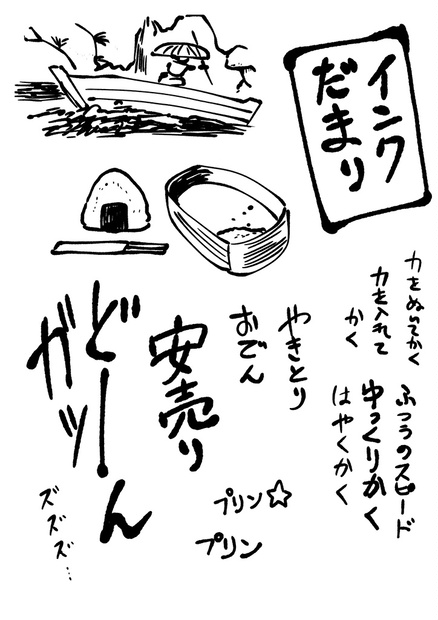 インク
だまり
力をぬいてかく
力を入れて
かく
ふつうのスピード
ゆっくりかく
はやくかく
やきとり
おでん
安売り
どーん
ガッ
ズズズ…
プリン☆
プリン